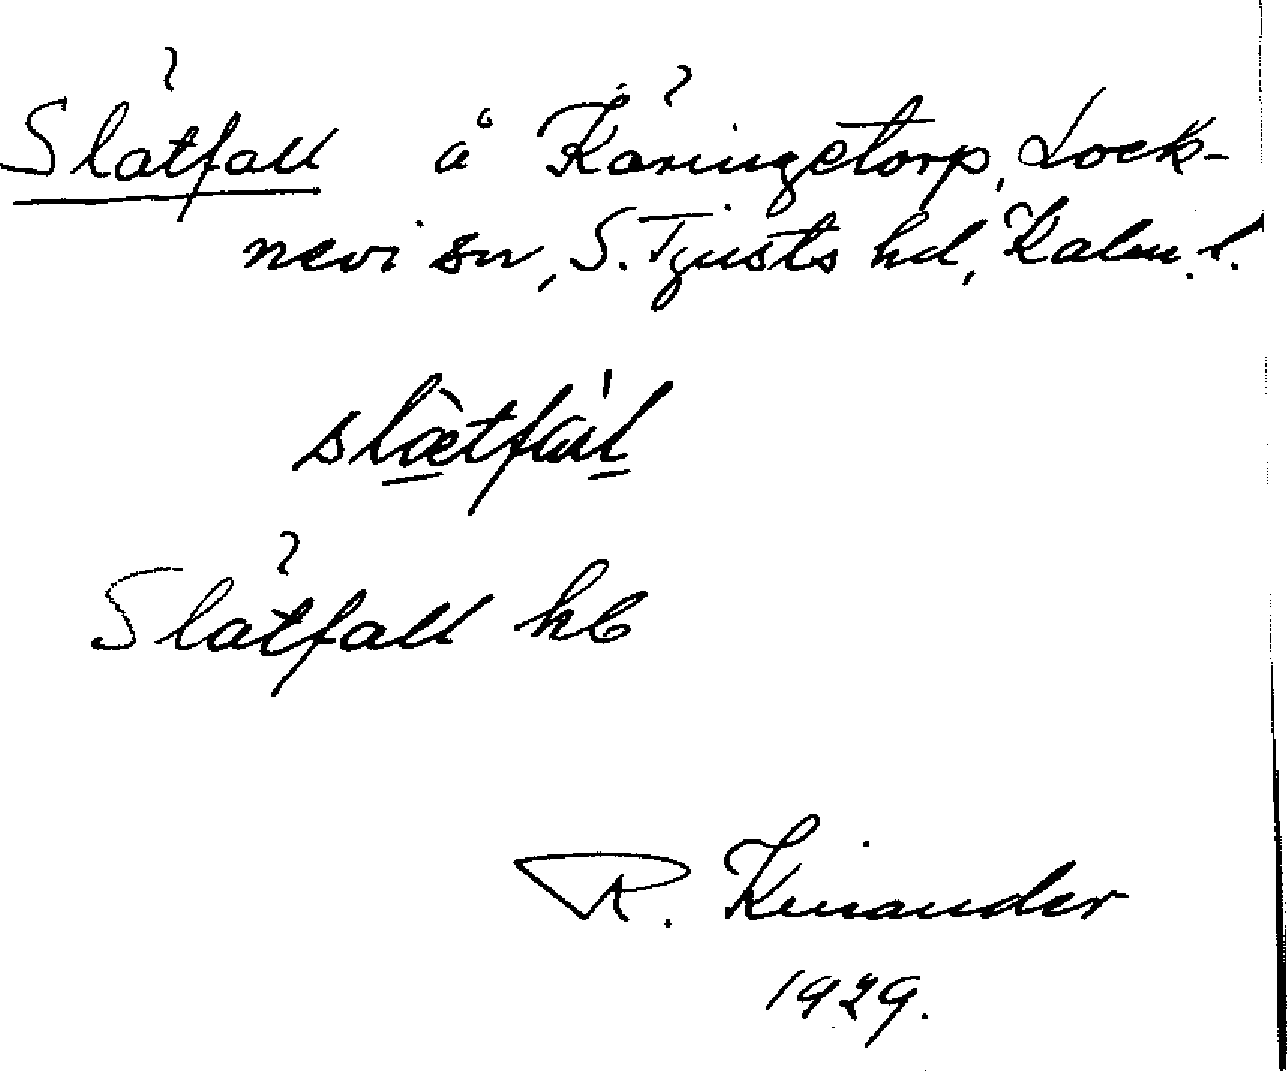 Slåtfall å Käringetorp, Lock-
nevi sn, S. Tjusts hd, Kalm. l.
slætfal
Slåtfall hb
R. Kinander
1929.